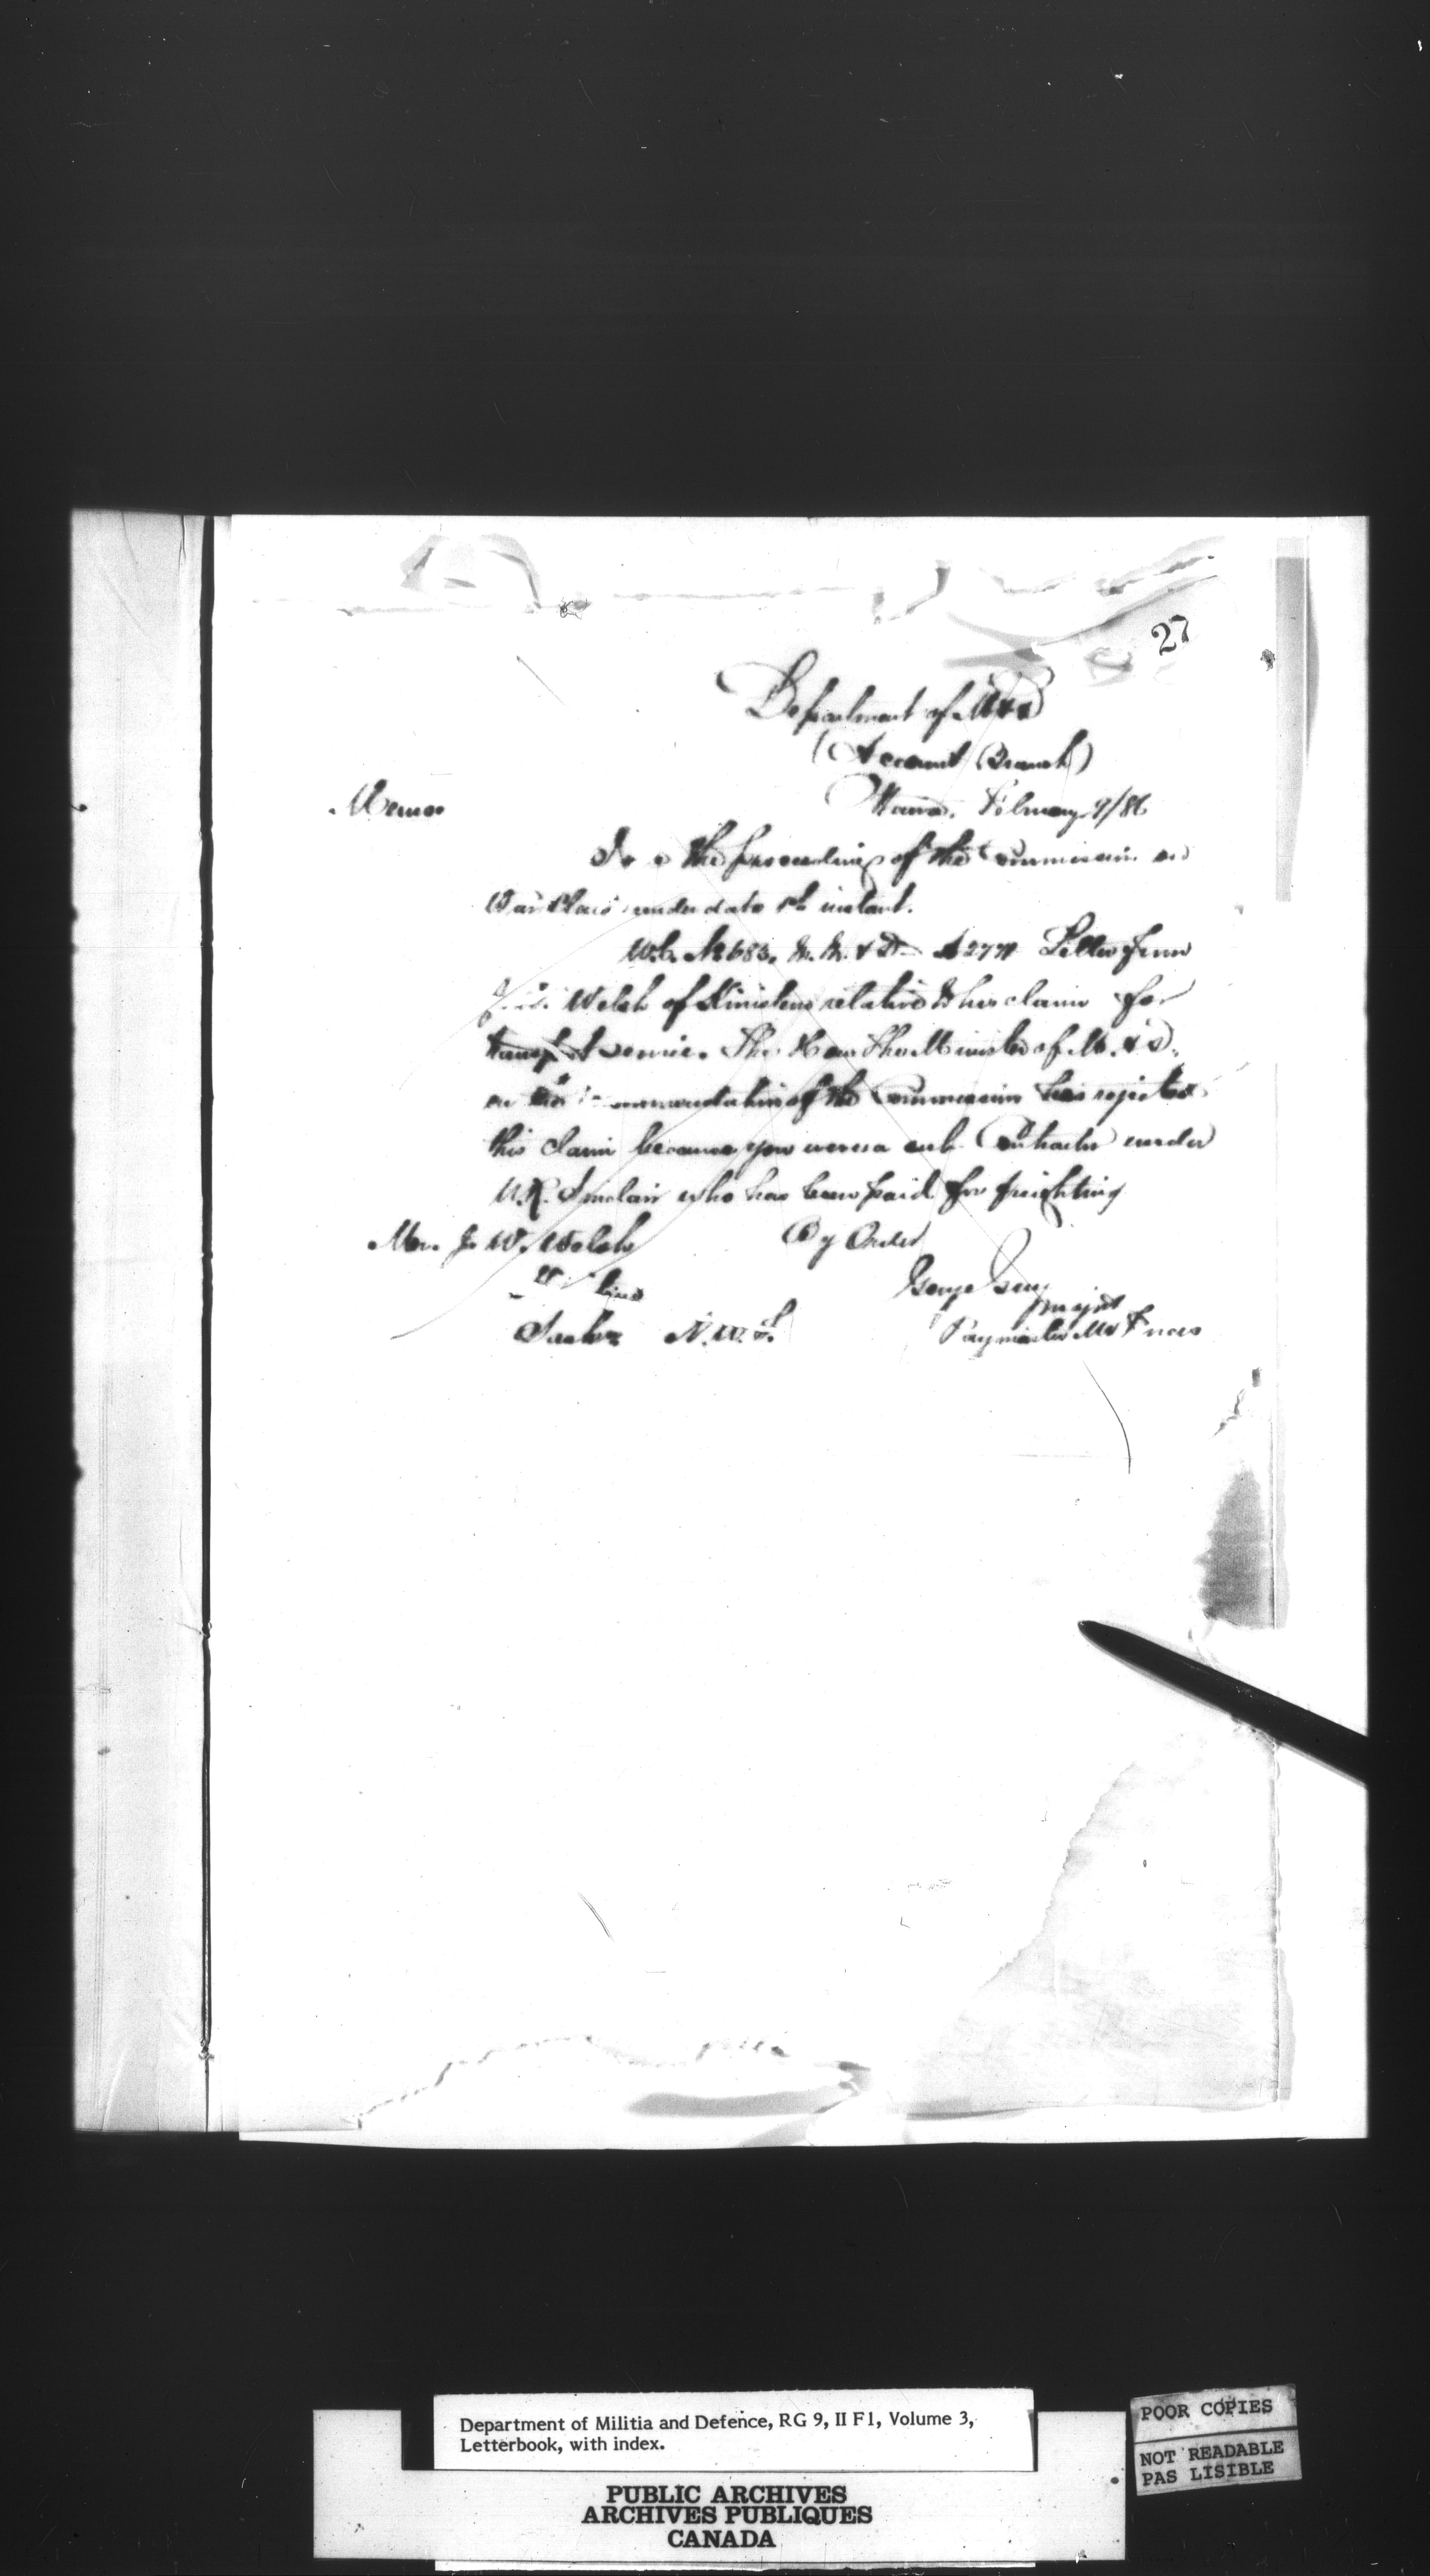 27
Department of M & D
(Account Branch)
Memo
Ottawa, February 9/86
the proceedings of the Commission on
War Claims under date instant.
W.C. No 683. M. & D. A2771 Letter from
Welsh of relative to his claim for
transport service. The Hon the Minister of M. & D.
on the recommendation of the Commission has rejected
this claim because you were a sub. Contractor under
Sinclair who has been paid for freighting
Mr. J. W. Welsh By Order
George Guy
Major
N.W.T. Paymaster Forces
Department of Militia and Defence, RG 9, II F1, Volume 3,
Letterbook, with index.
POOR COPIES
NOT READABLE
PAS LISIBLE
PUBLIC ARCHIVES
ARCHIVES PUBLIQUES
CANADA